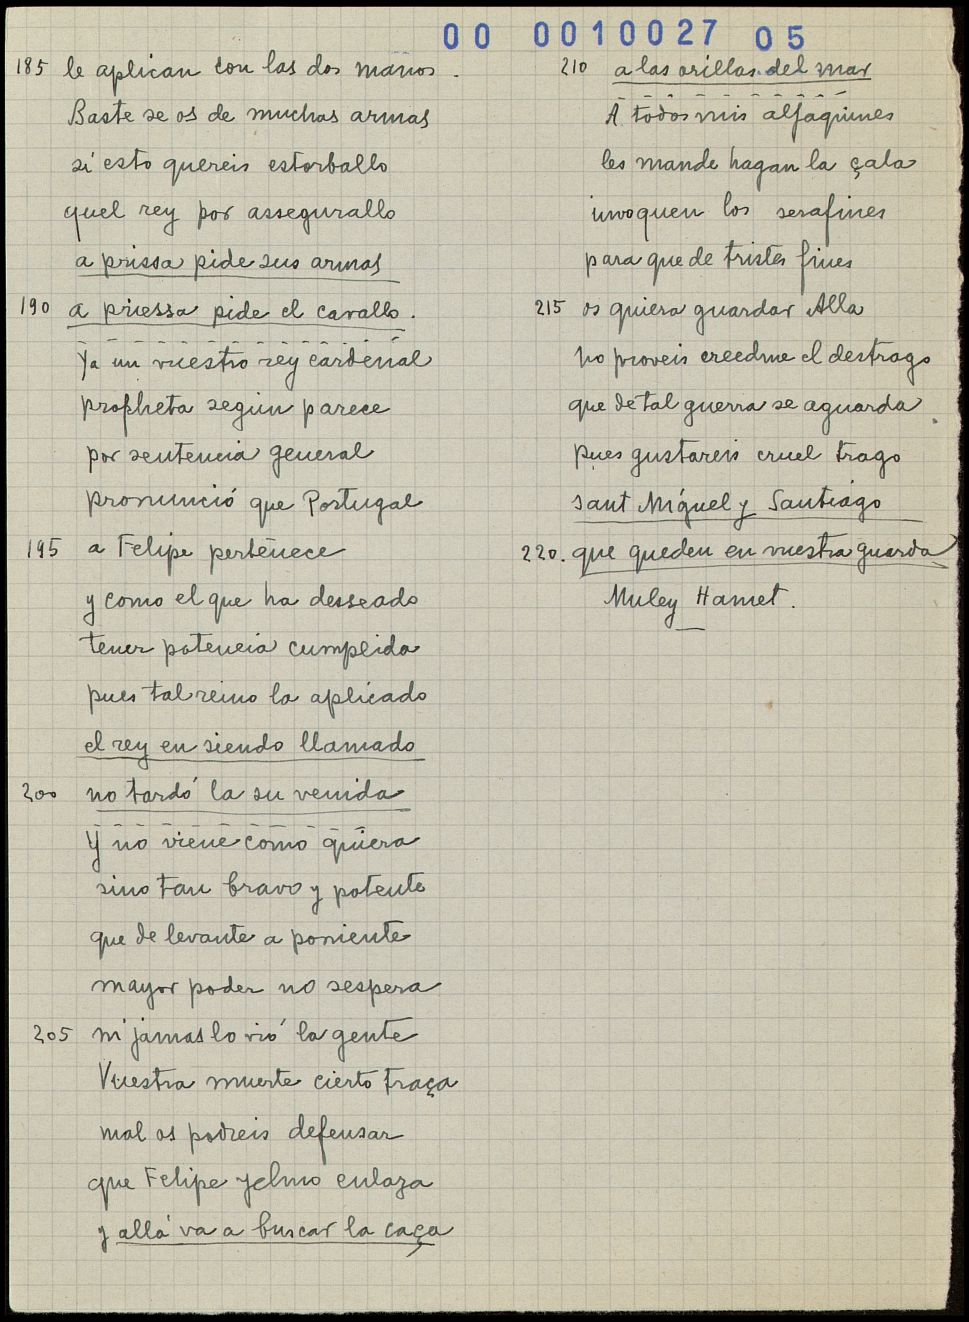 00 0010027 05
185 le aplican con las dos manos.
Baste se os de muchas armas
si esto quereis estorballo
quel rey por assegurallo
a prissa pide sus armas
190 a priessa pide el cavallo.
Ya un vuestro rey cardenal
propheta segun parece
por sentencia general
pronunció que Portugal
195 a Felipe pertenece
y como el que ha desseado
tener potencia cumplida
pues tal reino la aplicado
el rey en siendo llamado
200 no tardó la su venida
Y no viene como quiera
sino tan bravo y potente
que de levante a poniente
mayor poder no sespera
205 ni jamas lo vió la gente
Vuestra muerte cierto traça
mal os podreis defensar
que Felipe yelmo enlaza
y allá va a buscar la caça
210 a las orillas del mar
A todos mis alfaquines
les mande hagan la çala
invoquen los serafines
para que de tristes fines
215 os quiera guardar Alla
no proveis creedme el destrago
que de tal guerra se aguarda
pues gustareis cruel trago
sant Miguel y Santiago
220. que queden en vuestra guarda
Muley Hamet.